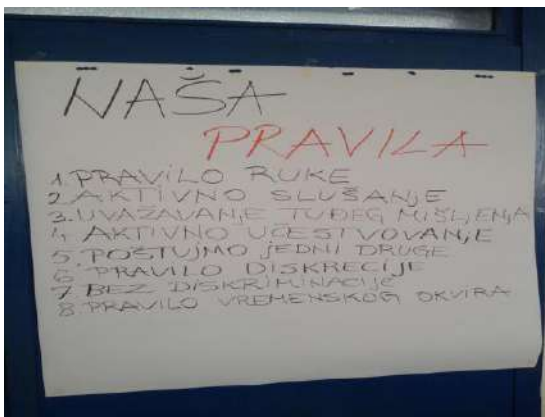 NAŠA
PRAVILA
1. PRAVILO RUKE
2. AKTIVNO SLUŠANJE
3. UVAŽAVANJE TUĐEG MIŠLJENJA
4. AKTIVNO UČESTVOVANJE
5. POŠTUJMO JEDNI DRUGE
6. PRAVILO DISKRECIJE
7. BEZ DISKRIMINACIJE
8. PRAVILO VREMENSKOG OKVIRA